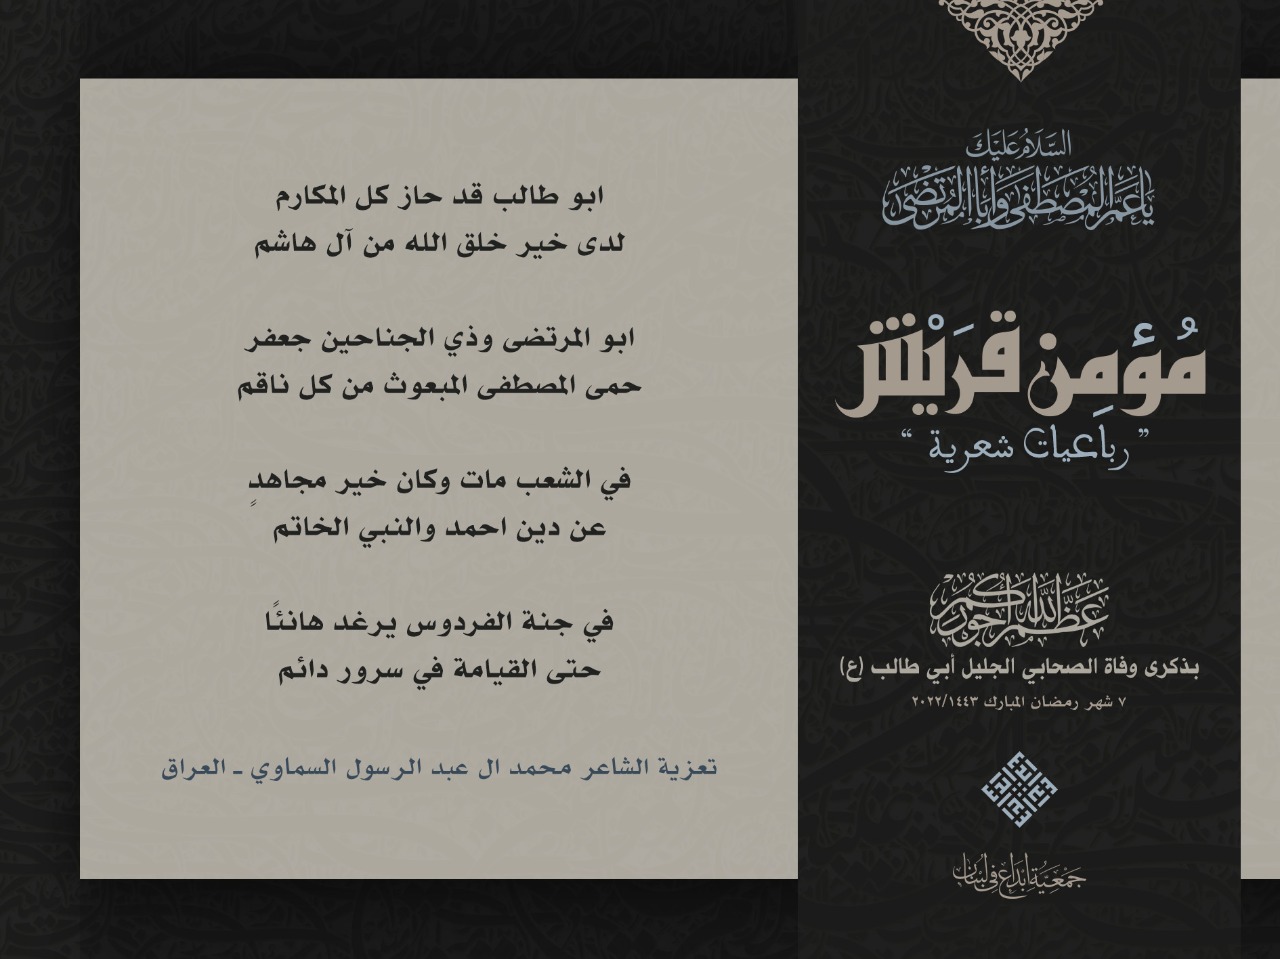 السَّلَامُ عَلَيْكَ
يَا عَمَّ الْمُصْطَفَى وَأَبَا الْمُرْتَضَى
مُؤمِن قُرَيْش
” رباعيات شعرية “
عَظَّمَ اللَّهُ أُجُورَكُمْ
بذكرى وفاة الصحابي الجليل أبي طالب (ع)
٧ شهر رمضان المبارك ٢٠٢٢/١٤٤٣
جَمْعِيَّة إِبْدَاع فِي لُبْنَان
ابو طالب قد حاز كل المكارم
لدى خير خلق الله من آل هاشم
ابو المرتضى وذي الجناحين جعفر
حمى المصطفى المبعوث من كل ناقم
في الشعب مات وكان خير مجاهدٍ
عن دين احمد والنبي الخاتم
في جنة الفردوس يرغد هانئًا
حتى القيامة في سرور دائم
تعزية الشاعر محمد ال عبد الرسول السماوي ـ العراق